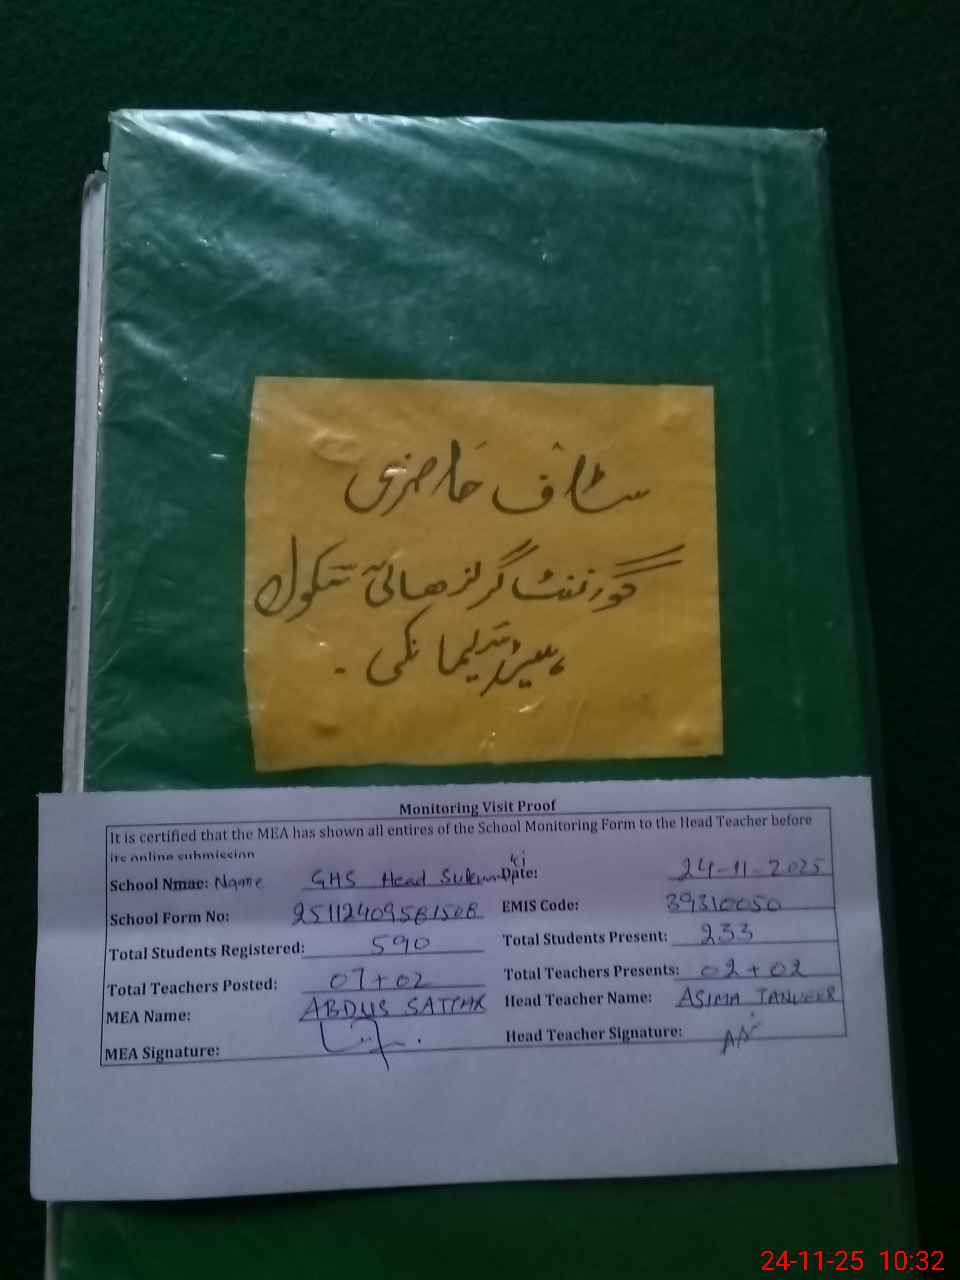 سٹاف حاضری
گورنمنٹ گرلز ھائی سکول
ہیڈ سلیمانکی ۔
Monitoring Visit Proof
It is certified that the MEA has shown all entires of the School Monitoring Form to the Head Teacher before
its online submission
School Nmae: Name GHS Head Date: 24-11-2025
School Form No: EMIS Code: 39310050
Total Students Registered: 590 Total Students Present: 233
Total Teachers Posted: 07+02 Total Teachers Presents: 02+02
MEA Name: ABDUS SATTAR Head Teacher Name: ASIMA TANVEER
MEA Signature: Head Teacher Signature:
24-11-25 10:32